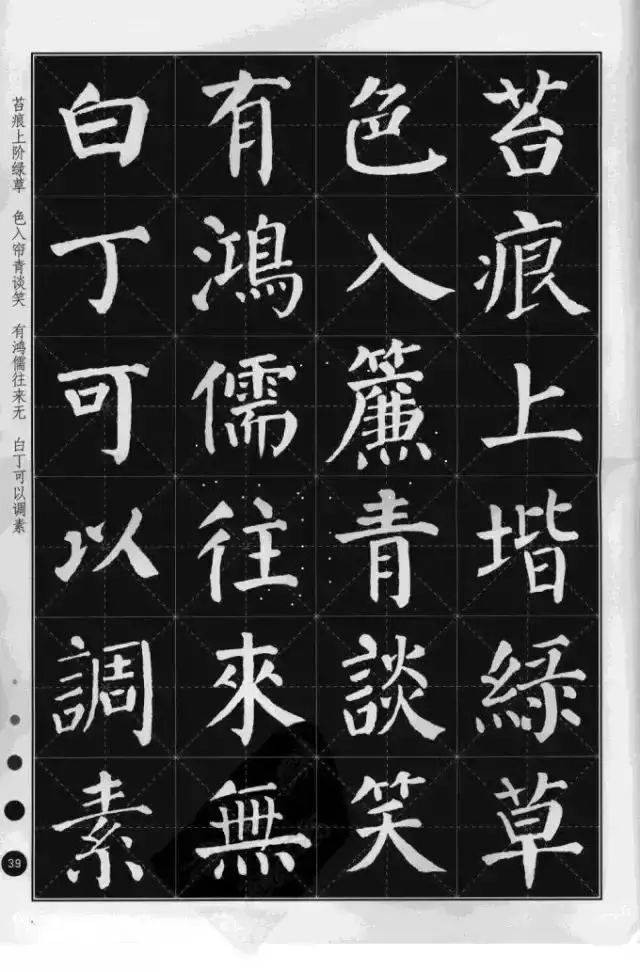 苔痕上堦綠草
色入簾青談笑
有鴻儒往來無
白丁可以調素
苔痕上阶绿草 色入帘青谈笑 有鸿儒往来无 白丁可以调素
39